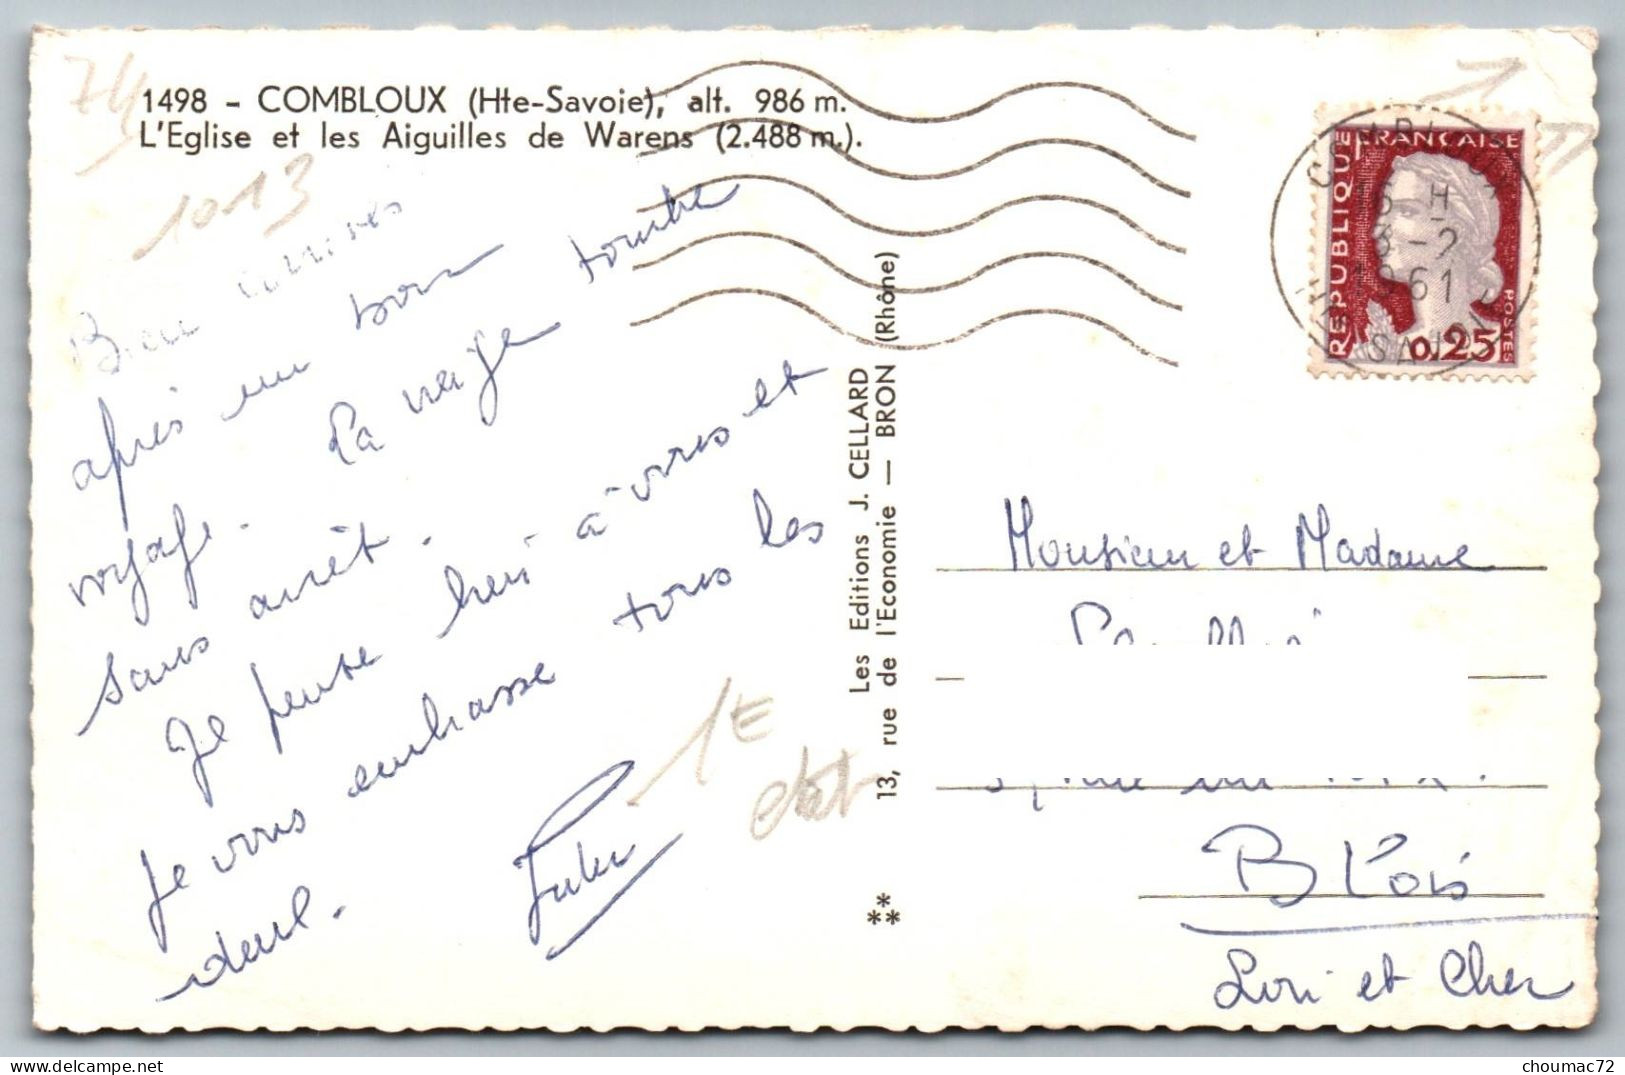 1498 - COMBLOUX (Hte-Savoie), alt. 986 m.
L'Eglise et les Aiguilles de Warens (2.488 m.).
74
1013
Bien arrivés
après un bon
voyage. La neige tombe
sans arrêt.
Je pense bien à vous et
Je vous embrasse tous les
deux.
1E
état
Les Editions J. CELLARD
13, rue de l'Economie — BRON (Rhône)
**
REPUBLIQUE FRANÇAISE
POSTES
0,25
16 H
3-2
1961
SAVOIE
Monsieur et Madame
BLois
Loir et Cher
choumac72